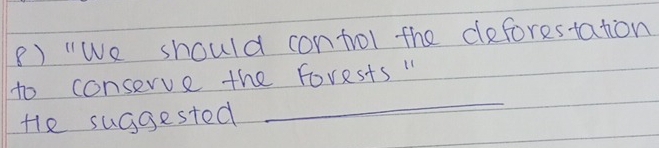 8) "We should control the deforestation
to conserve the forests"
He suggested ____________